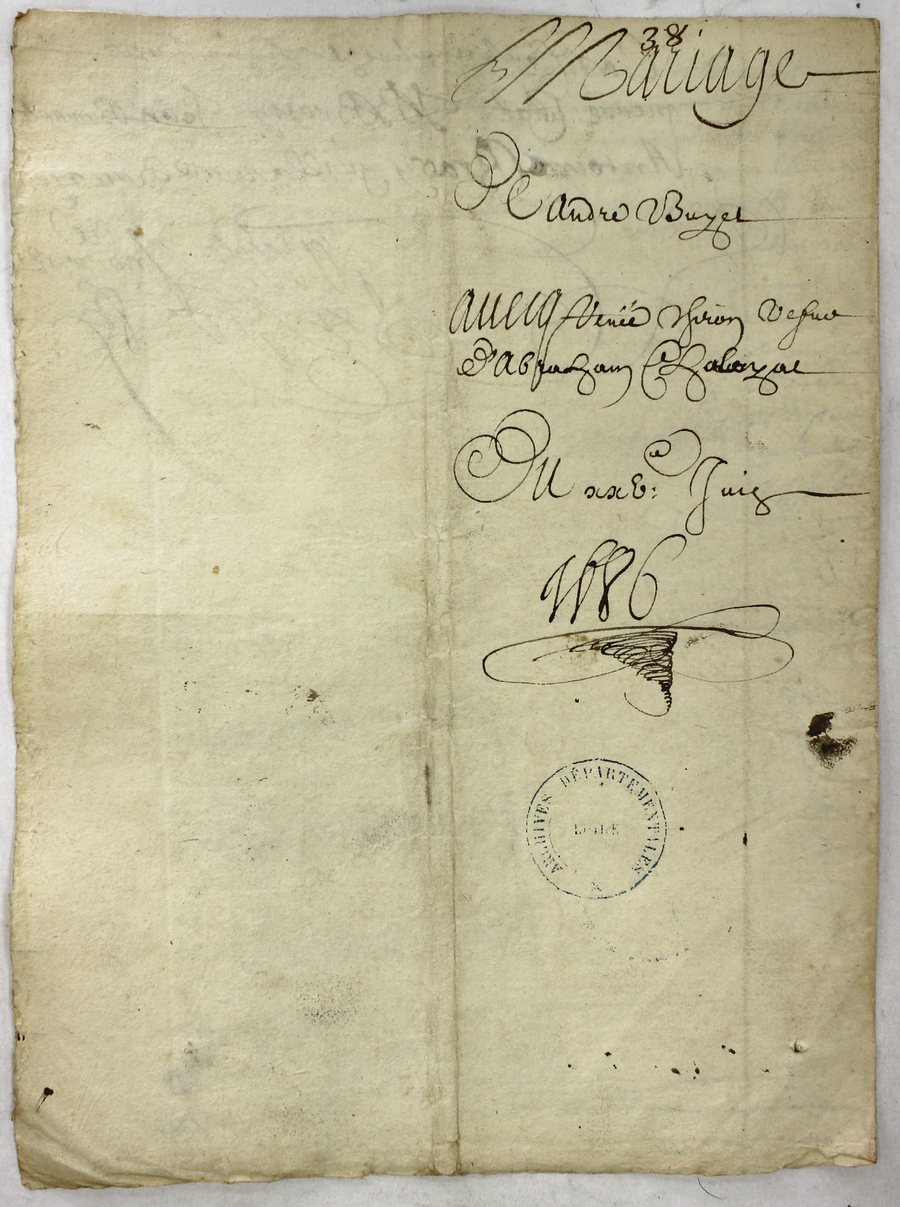 38
Mariage
De andre Buyet
avecq Renée Thiron vefue
d'abraham Chaloyat
Du xxve: Juin
1686
ARCHIVES DÉPARTEMENTALES